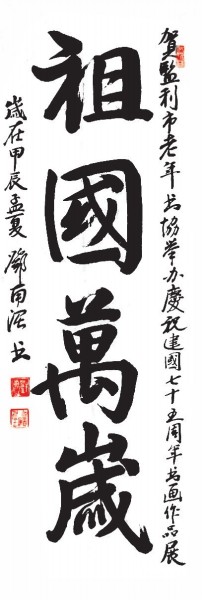 賀監利市老年书協举办慶祝建國七十五周年书画作品展
祖國萬歲
歲在甲辰孟夏 鄧南深书